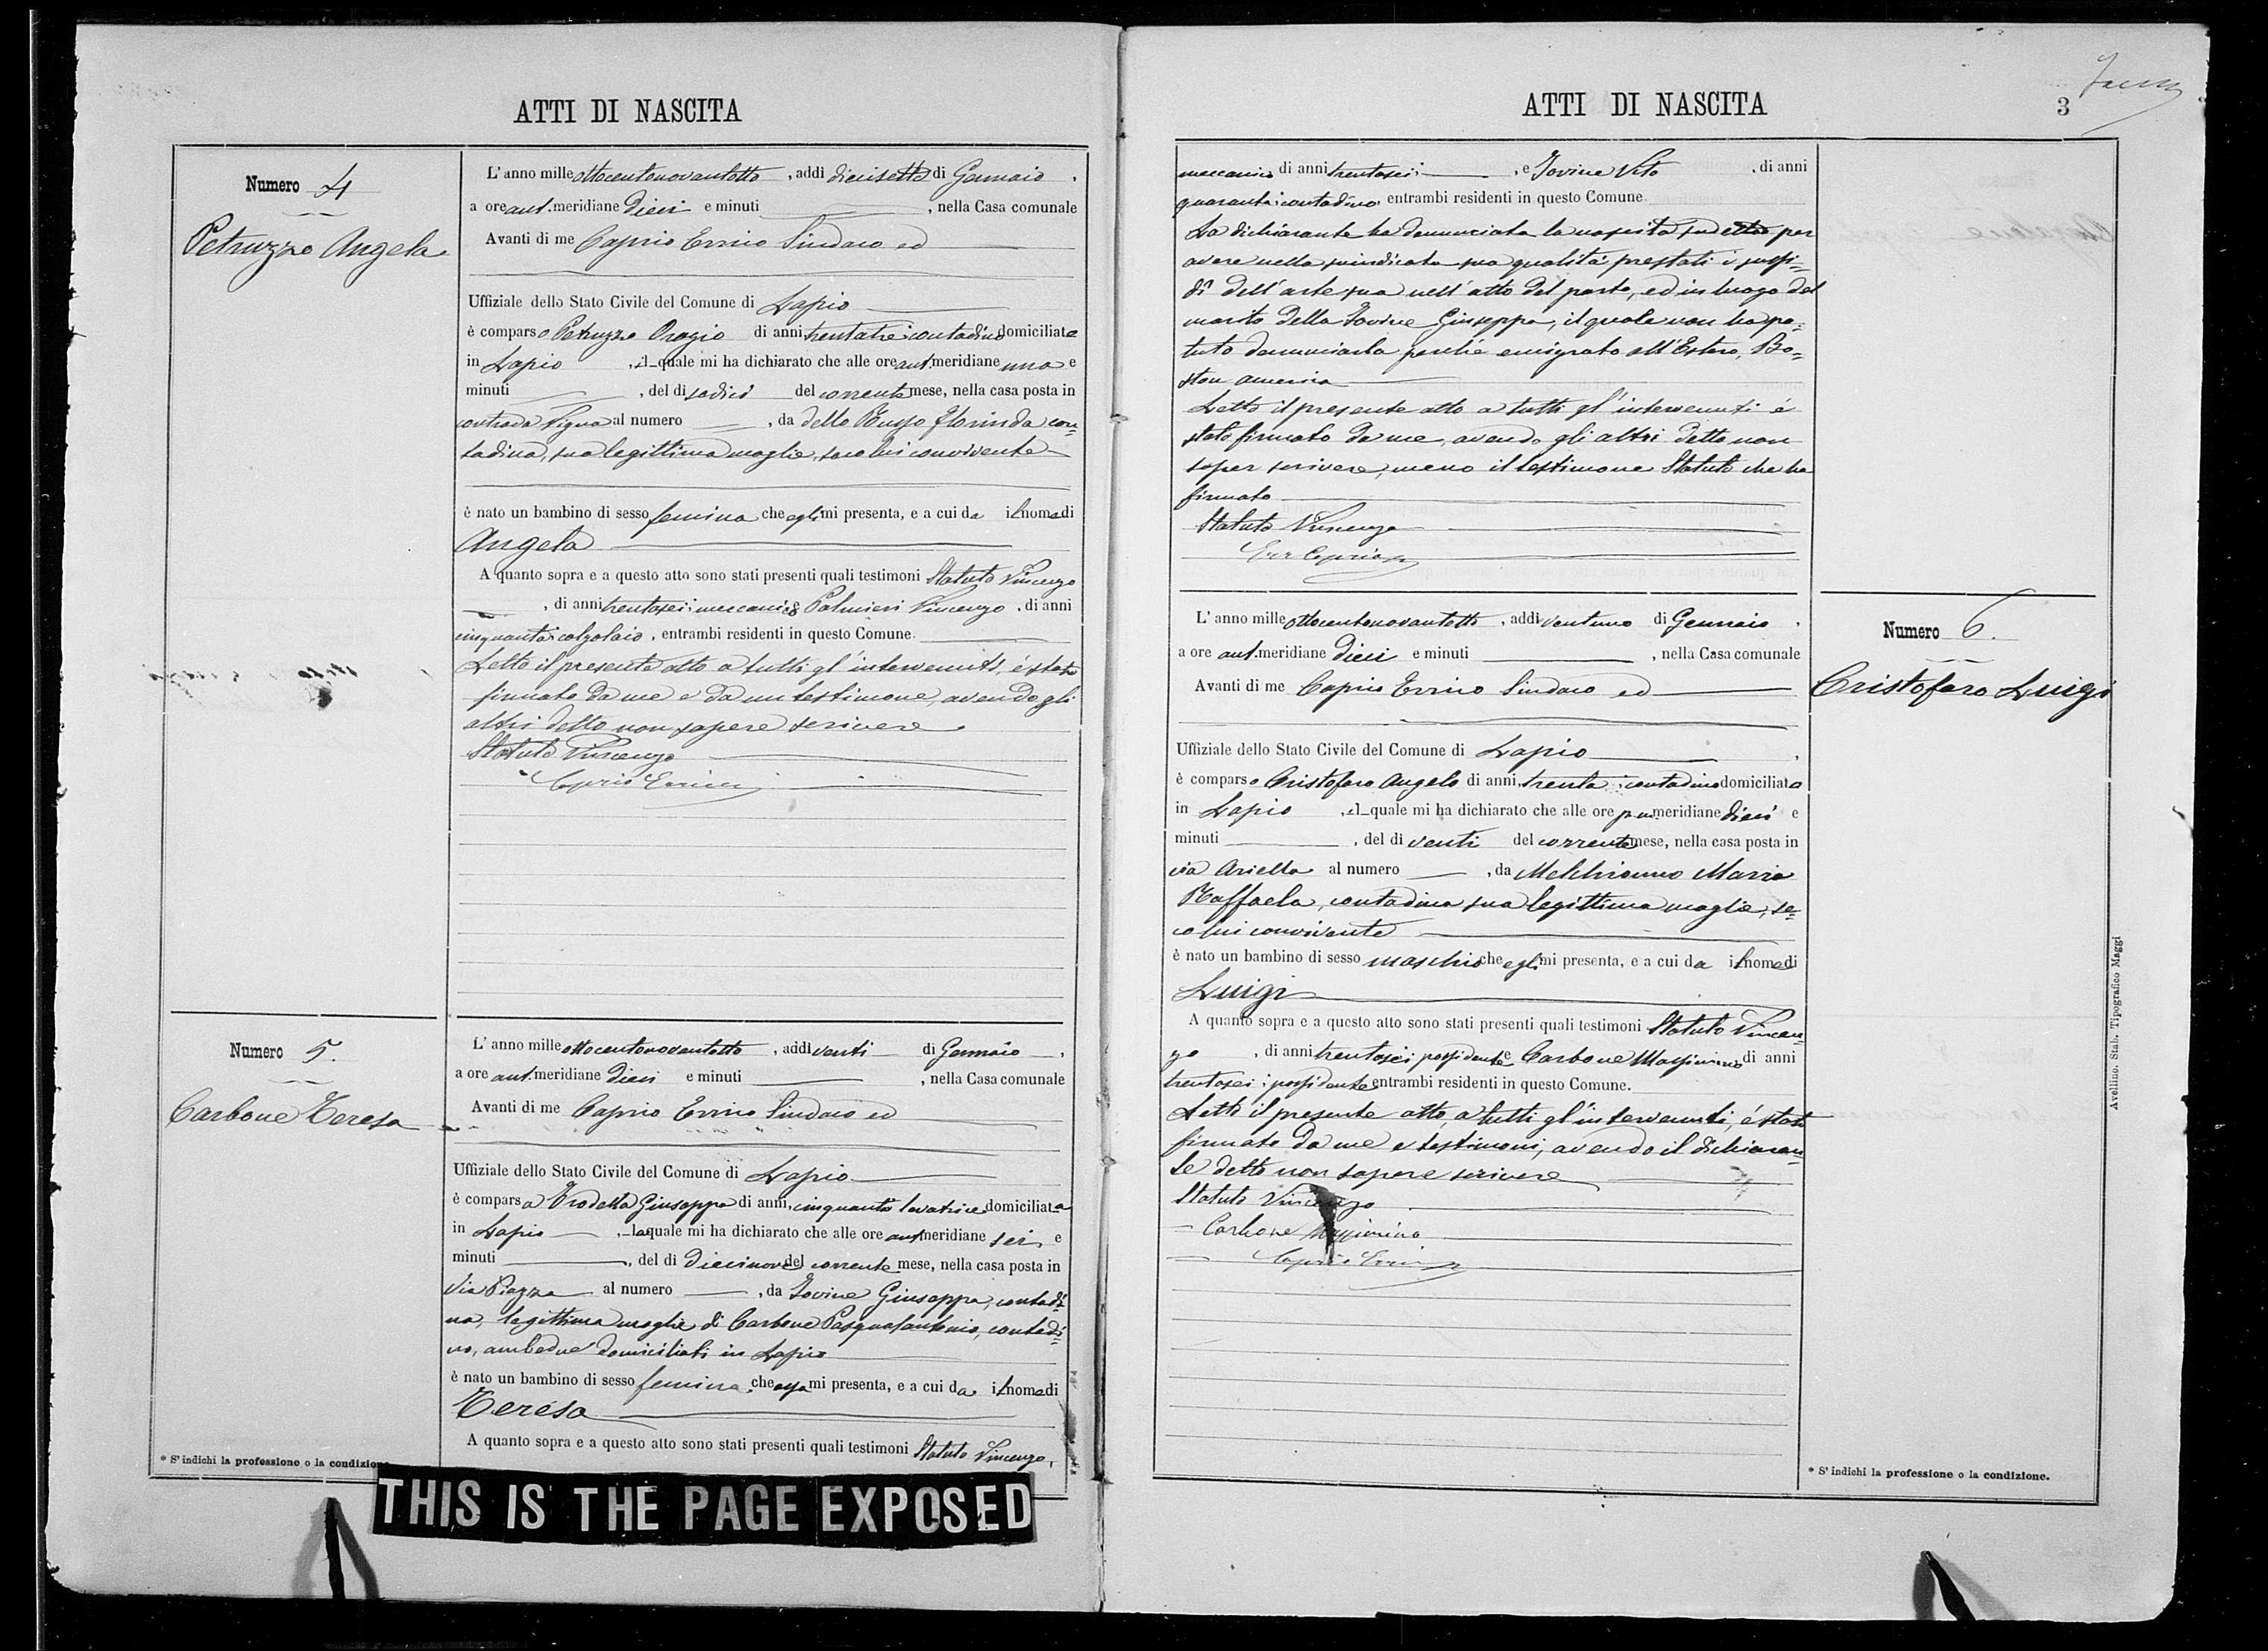 ATTI DI NASCITA
Numero 4
Petruzzo Angela
L'anno mille ottocentonovantotto, addì diciisette di Gennaio,
a ore ant.meridiane dieci e minuti, nella Casa comunale
Avanti di me Caprio Errico Sindaco ed
Uffiziale dello Stato Civile del Comune di Lapio
è comparso Petruzzo Orazio di anni trentatre contadino domiciliato
in Lapio, il quale mi ha dichiarato che alle ore ant.meridiane una e
minuti, del dì sedici del corrente mese, nella casa posta in
contrada Vigna al numero, da dello Russo Florinda con=
tadina, sua legittima moglie, seco lui convivente
è nato un bambino di sesso femina che egli mi presenta, e a cui da il nome di
Angela
A quanto sopra e a questo atto sono stati presenti quali testimoni Statuto Vincenzo
, di anni trentasei meccanico e Palmieri Vincenzo, di anni
cinquanta calzolaio, entrambi residenti in questo Comune.
Letto il presente atto a tutti gl'intervenuti, è stato
firmato da me e da un testimone, avendo gli
altri detto non sapere scrivere.
Statuto Vincenzo
Caprio Errico
Numero 5.
Carbone Teresa
L'anno mille ottocentonovantotto, addì venti di Gennaio,
a ore ant.meridiane dieci e minuti, nella Casa comunale
Avanti di me Caprio Errico Sindaco ed
Uffiziale dello Stato Civile del Comune di Lapio
è comparsa Giuseppa di anni cinquanta levatrice domiciliata
in Lapio, la quale mi ha dichiarato che alle ore ant.meridiane sei e
minuti, del dì diecinove del corrente mese, nella casa posta in
Via Piazza al numero, da Iovine Giuseppa, contadi=
na, legittima moglie di Carbone Pasqualantonio, contadi=
no, ambedue domiciliati in Lapio
è nato un bambino di sesso femina, che essa mi presenta, e a cui da il nome di
Teresa
A quanto sopra e a questo atto sono stati presenti quali testimoni Statuto Vincenzo,
* S'indichi la professione o la condizione
THIS IS THE PAGE EXPOSED
ATTI DI NASCITA
3
meccanico di anni trentasei, e Iovine Vito, di anni
quaranta contadino entrambi residenti in questo Comune.
La dichiarante ha denunciata la nascita sudetta per
avere nella suindicata sua qualità prestati i sussi=
dî dell'arte sua nell'atto del parto, ed in luogo del
marito della Iovine Giuseppa, il quale non ha po=
tuto denunciarla perchè emigrato all'Estero, Bo=
ston America
Letto il presente atto a tutti gl'intervenuti è
stato firmato da me, avendo gli altri detto non
saper scrivere, meno il testimone Statuto che ha
firmato
Statuto Vincenzo
Err Caprio
Numero 6.
Cristofaro Luigi
L'anno mille ottocentonovantotto, addì ventuno di Gennaio,
a ore ant.meridiane dieci e minuti, nella Casa comunale
Avanti di me Caprio Errico Sindaco ed
Uffiziale dello Stato Civile del Comune di Lapio,
è comparso Cristofaro Angelo di anni trenta, contadino domiciliato
in Lapio, il quale mi ha dichiarato che alle ore pomeridiane dieci e
minuti, del dì venti del corrente mese, nella casa posta in
via Ariella al numero, da Melchionno Maria
Raffaela, contadina sua legittima moglie, se=
co lui convivente
è nato un bambino di sesso maschio che egli mi presenta, e a cui da il nome di
Luigi
A quanto sopra e a questo atto sono stati presenti quali testimoni Statuto Vincen=
zo, di anni trentasei possidente e Carbone Massimino di anni
trentasei possidente entrambi residenti in questo Comune.
Letto il presente atto, a tutti gl'intervenuti, è stato
firmato da me e testimoni, avendo il dichiaran=
te detto non sapere scrivere
Statuto Vincenzo
Carbone Massimino
Caprio Errico
* S'indichi la professione o la condizione.
Avellino. Stab. Tipografico Maggi